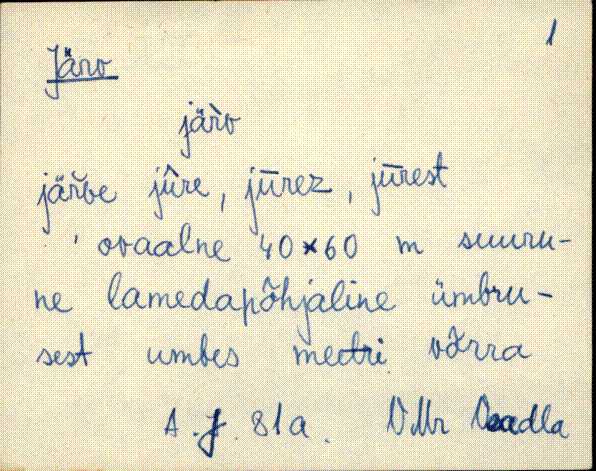 1
Järv
jär̀v
järve jûre, jūrez, jūrest
' ovaalne 40×60 m suuru-
ne lamedapõhjaline ümbru-
sest umbes meetri võrra
A. J. 81a. VMr Vaadla